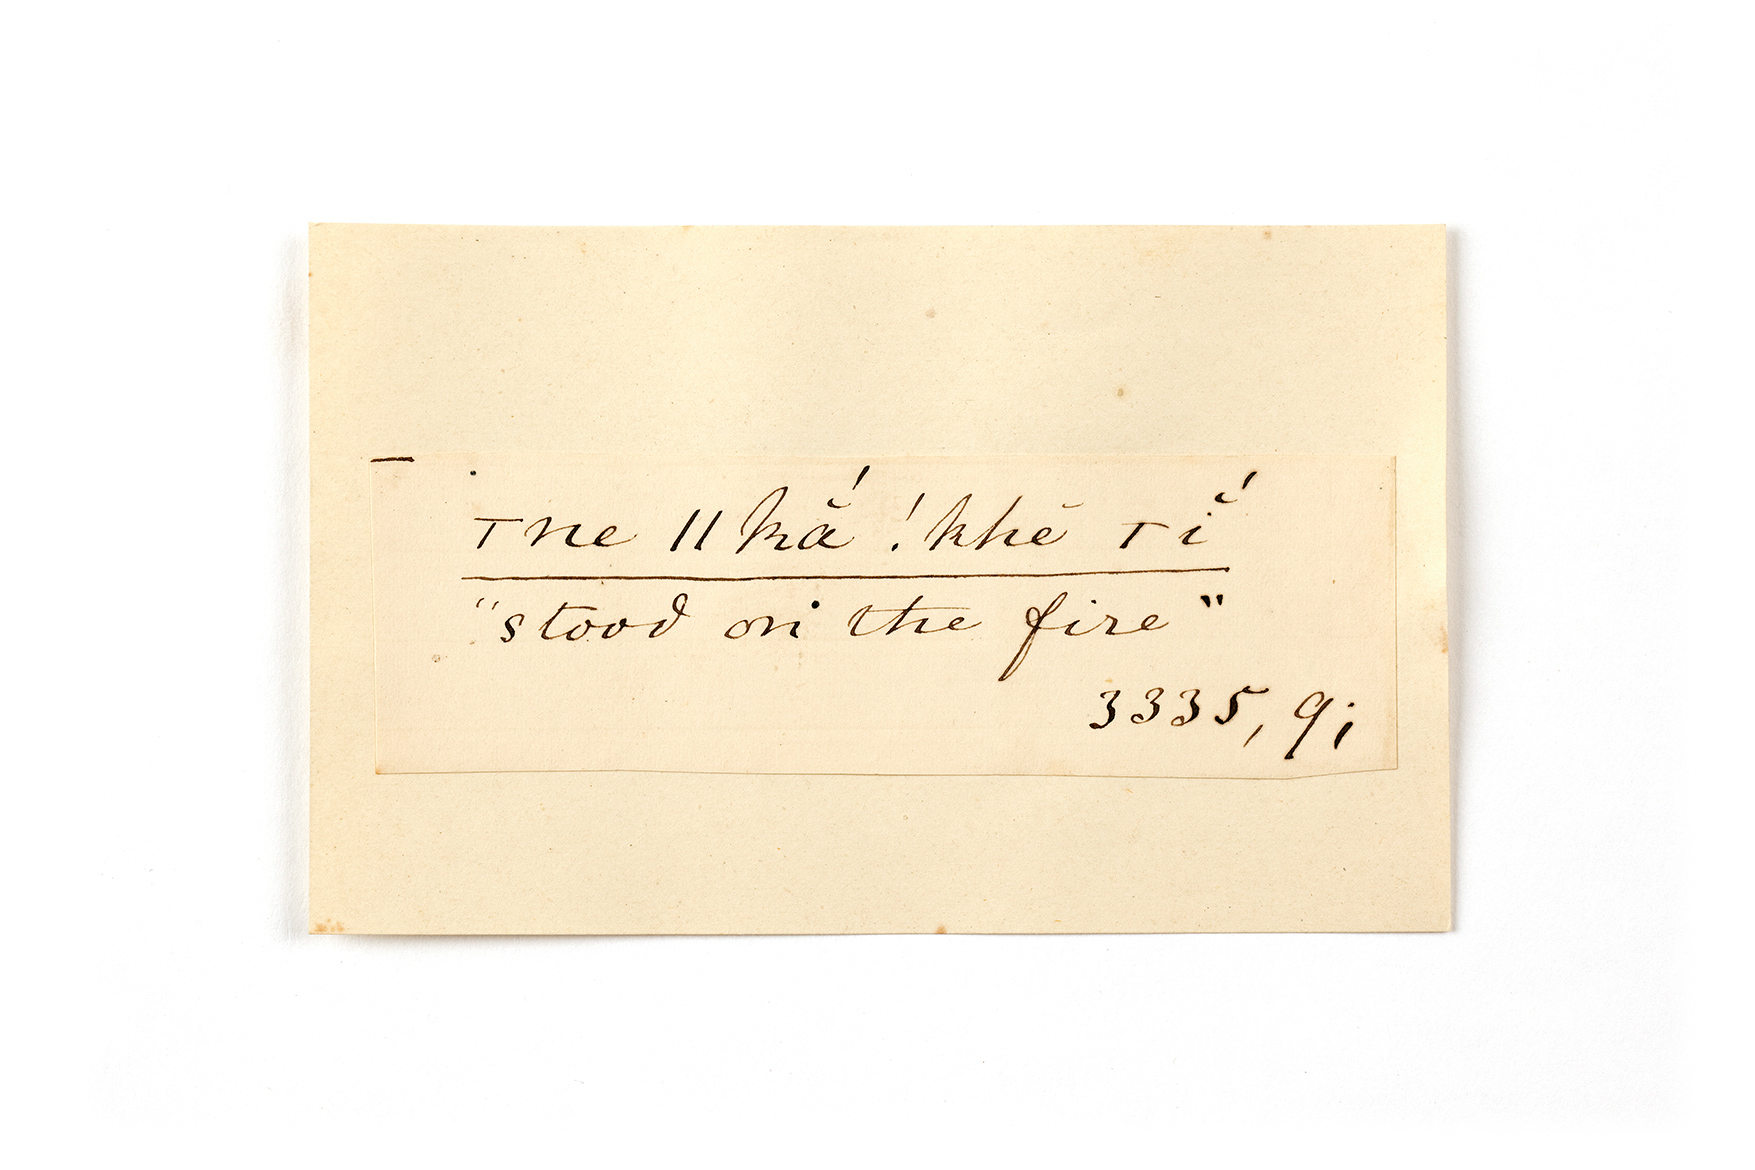 Tne ǁkắ !khĕ Tĭ́
"stood on the fire"
3335, 9;